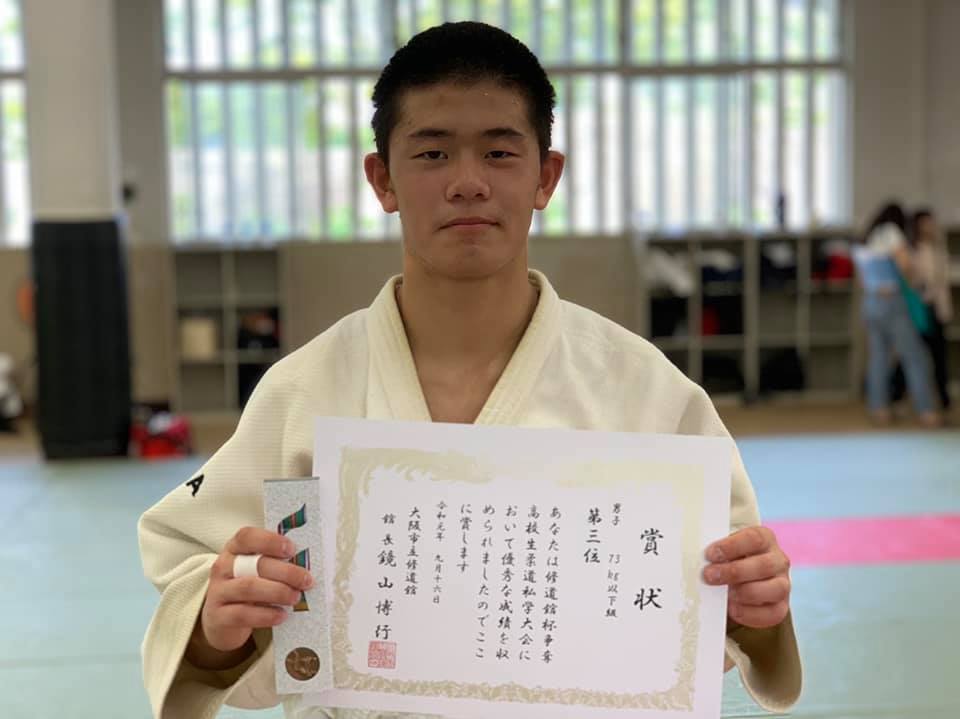 賞状
男子 73kg以下級
第三位
あなたは修道館杯争奪
高校生柔道私学大会に
おいて優秀な成績を収
められましたのでここ
に賞します
令和元年 九月十六日
大阪市立修道館
館長 鏡山博行
A